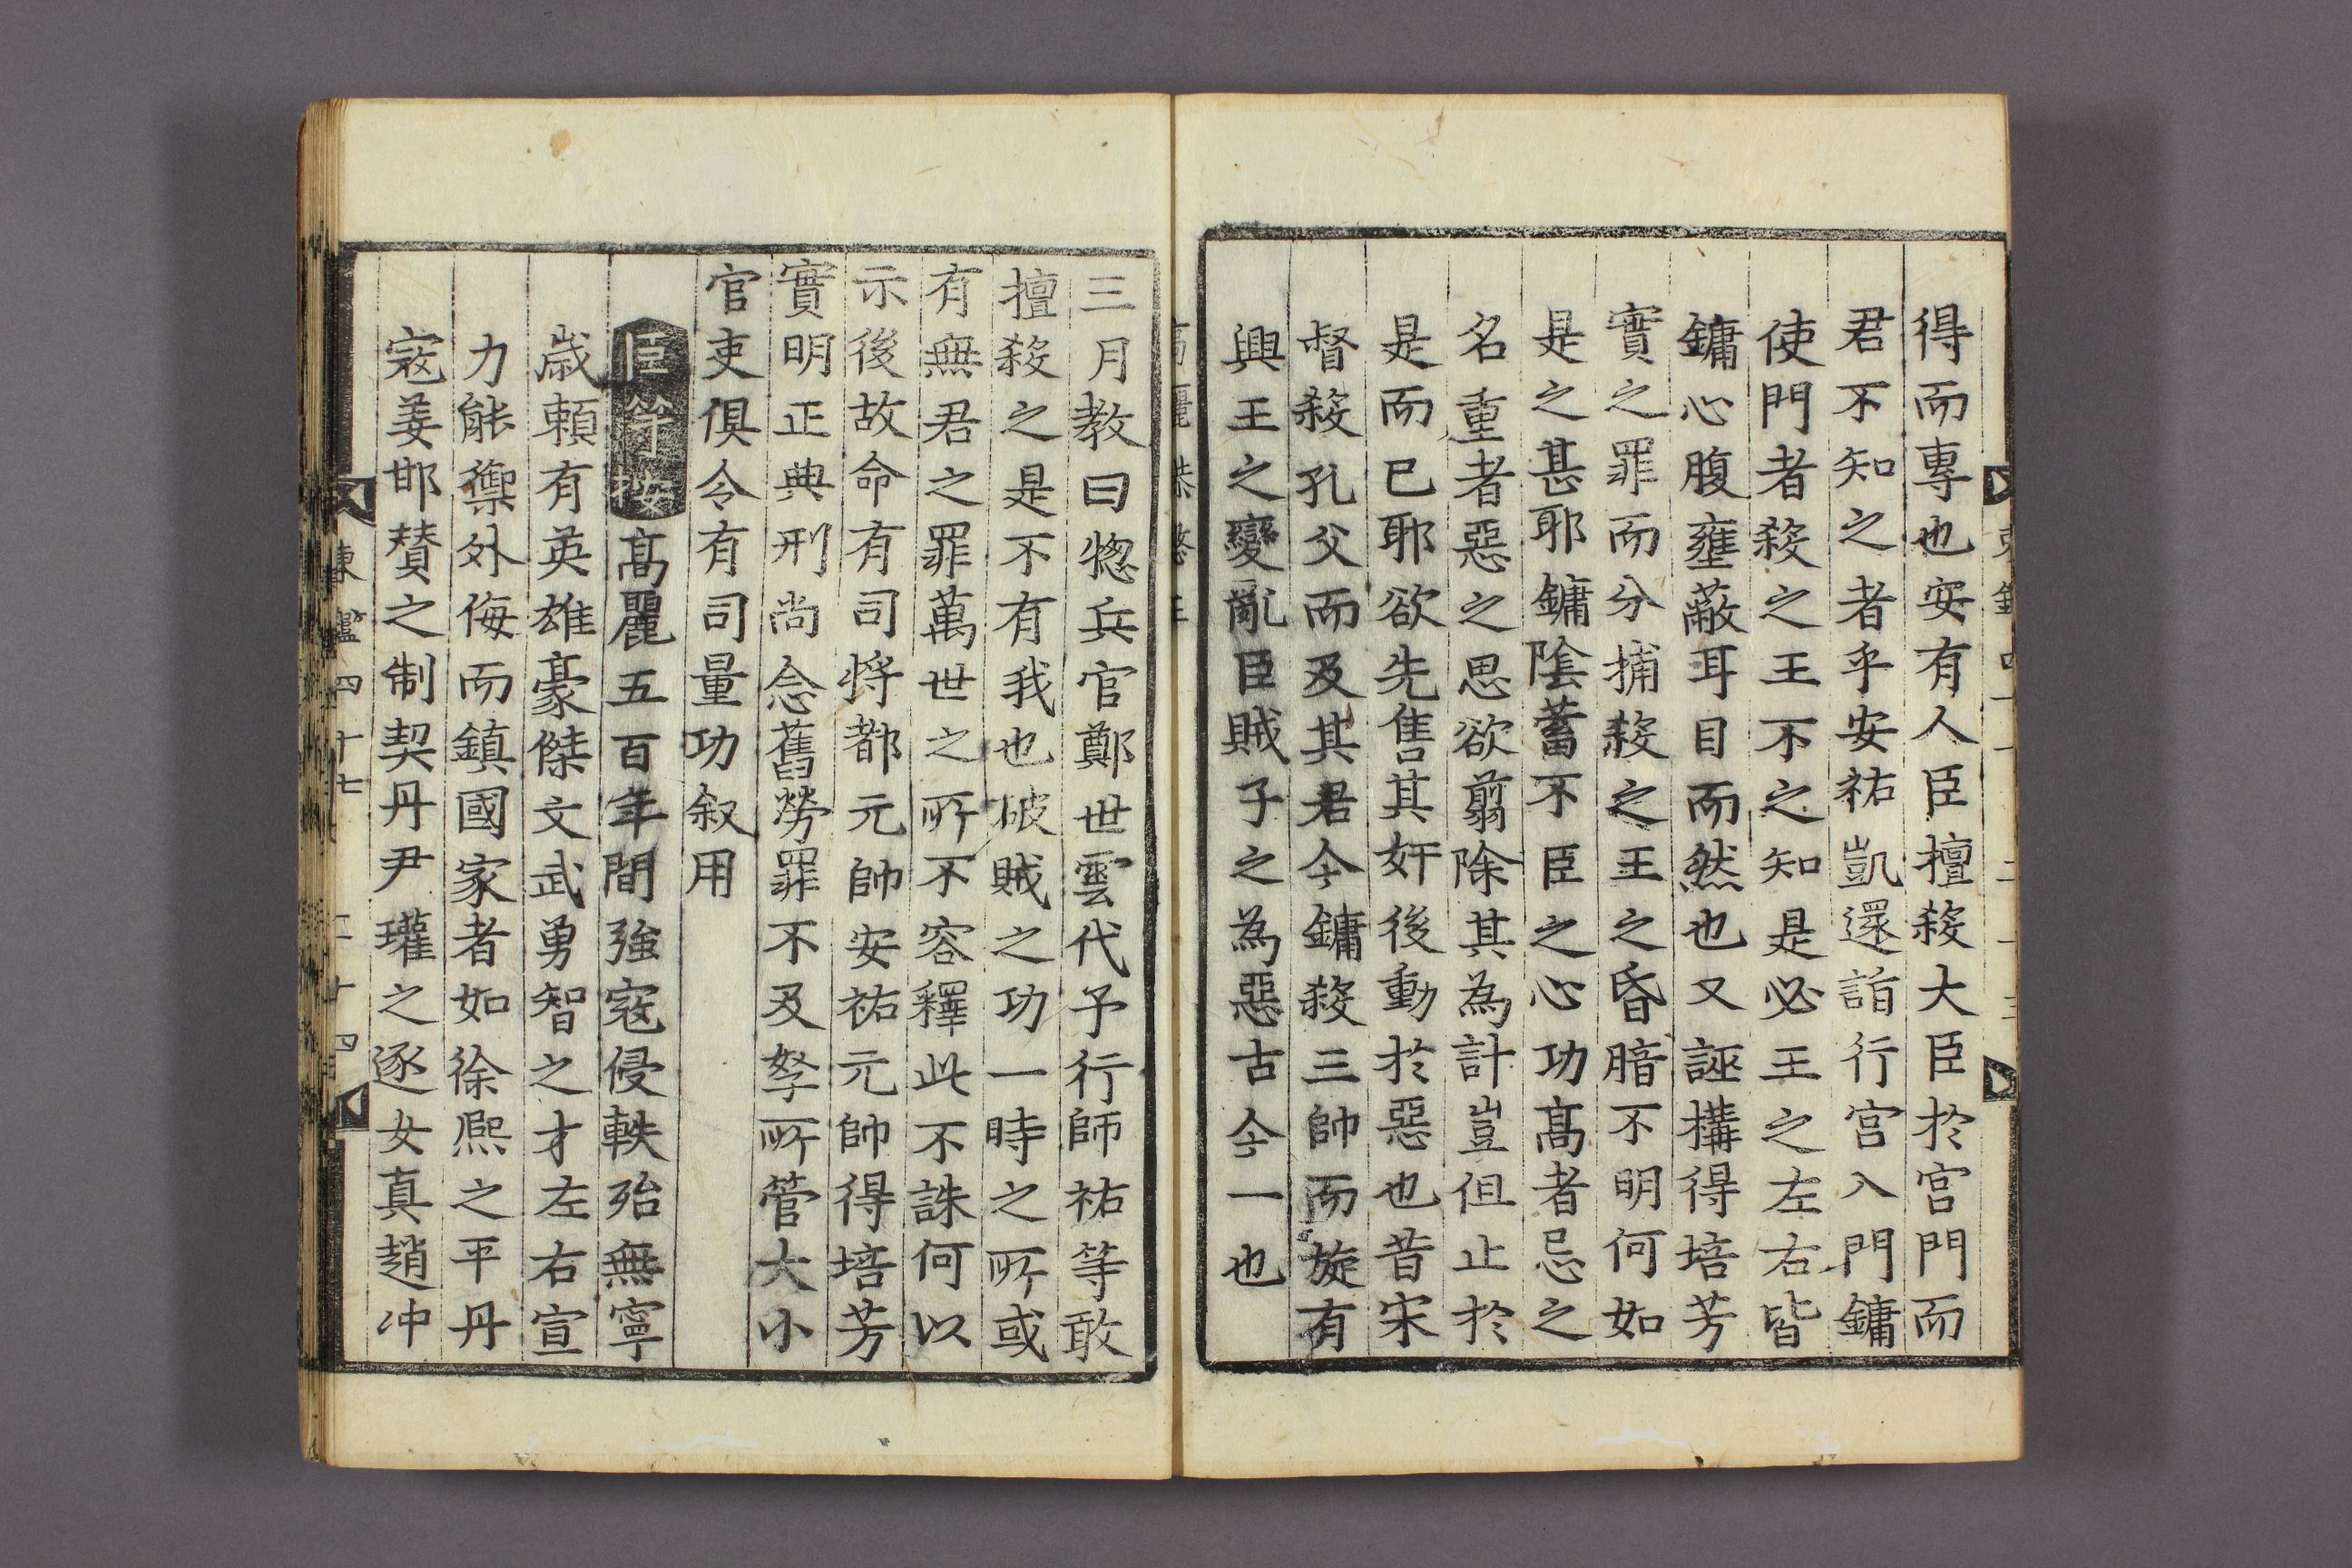 得而專也安有人臣擅殺大臣於宮門而
君不知之者乎安祐凱還詣行宮入門鏞
使門者殺之王不之知是必王之左右皆
鏞心腹壅蔽耳目而然也又誣構得培芳
實之罪而分捕殺之王之昏暗不明何如
是之甚耶鏞陰蓄不臣之心功髙者忌之
名重者惡之思欲翦除其為計豈但止於
是而已耶欲先售其奸後動於惡也昔宋
督殺孔父而及其君今鏞殺三帥而旋有
興王之變亂臣賊子之為惡古今一也
三月教曰惣兵官鄭世雲代予行師祐等敢
擅殺之是不有我也破賊之功一時之所或
有無君之罪萬世之所不容釋此不誅何以
示後故命有司將都元帥安祐元帥得培芳
實明正典刑尚念舊勞罪不及孥所管大小
官吏俱令有司量功叙用
臣等按髙麗五百年間強寇侵軼殆無寧
歲頼有英雄豪傑文武勇智之才左右宣
力能禦外侮而鎮國家者如徐熙之平丹
寇姜邯賛之制契丹尹瓘之逐女真趙冲
東鑑四十七
二十四